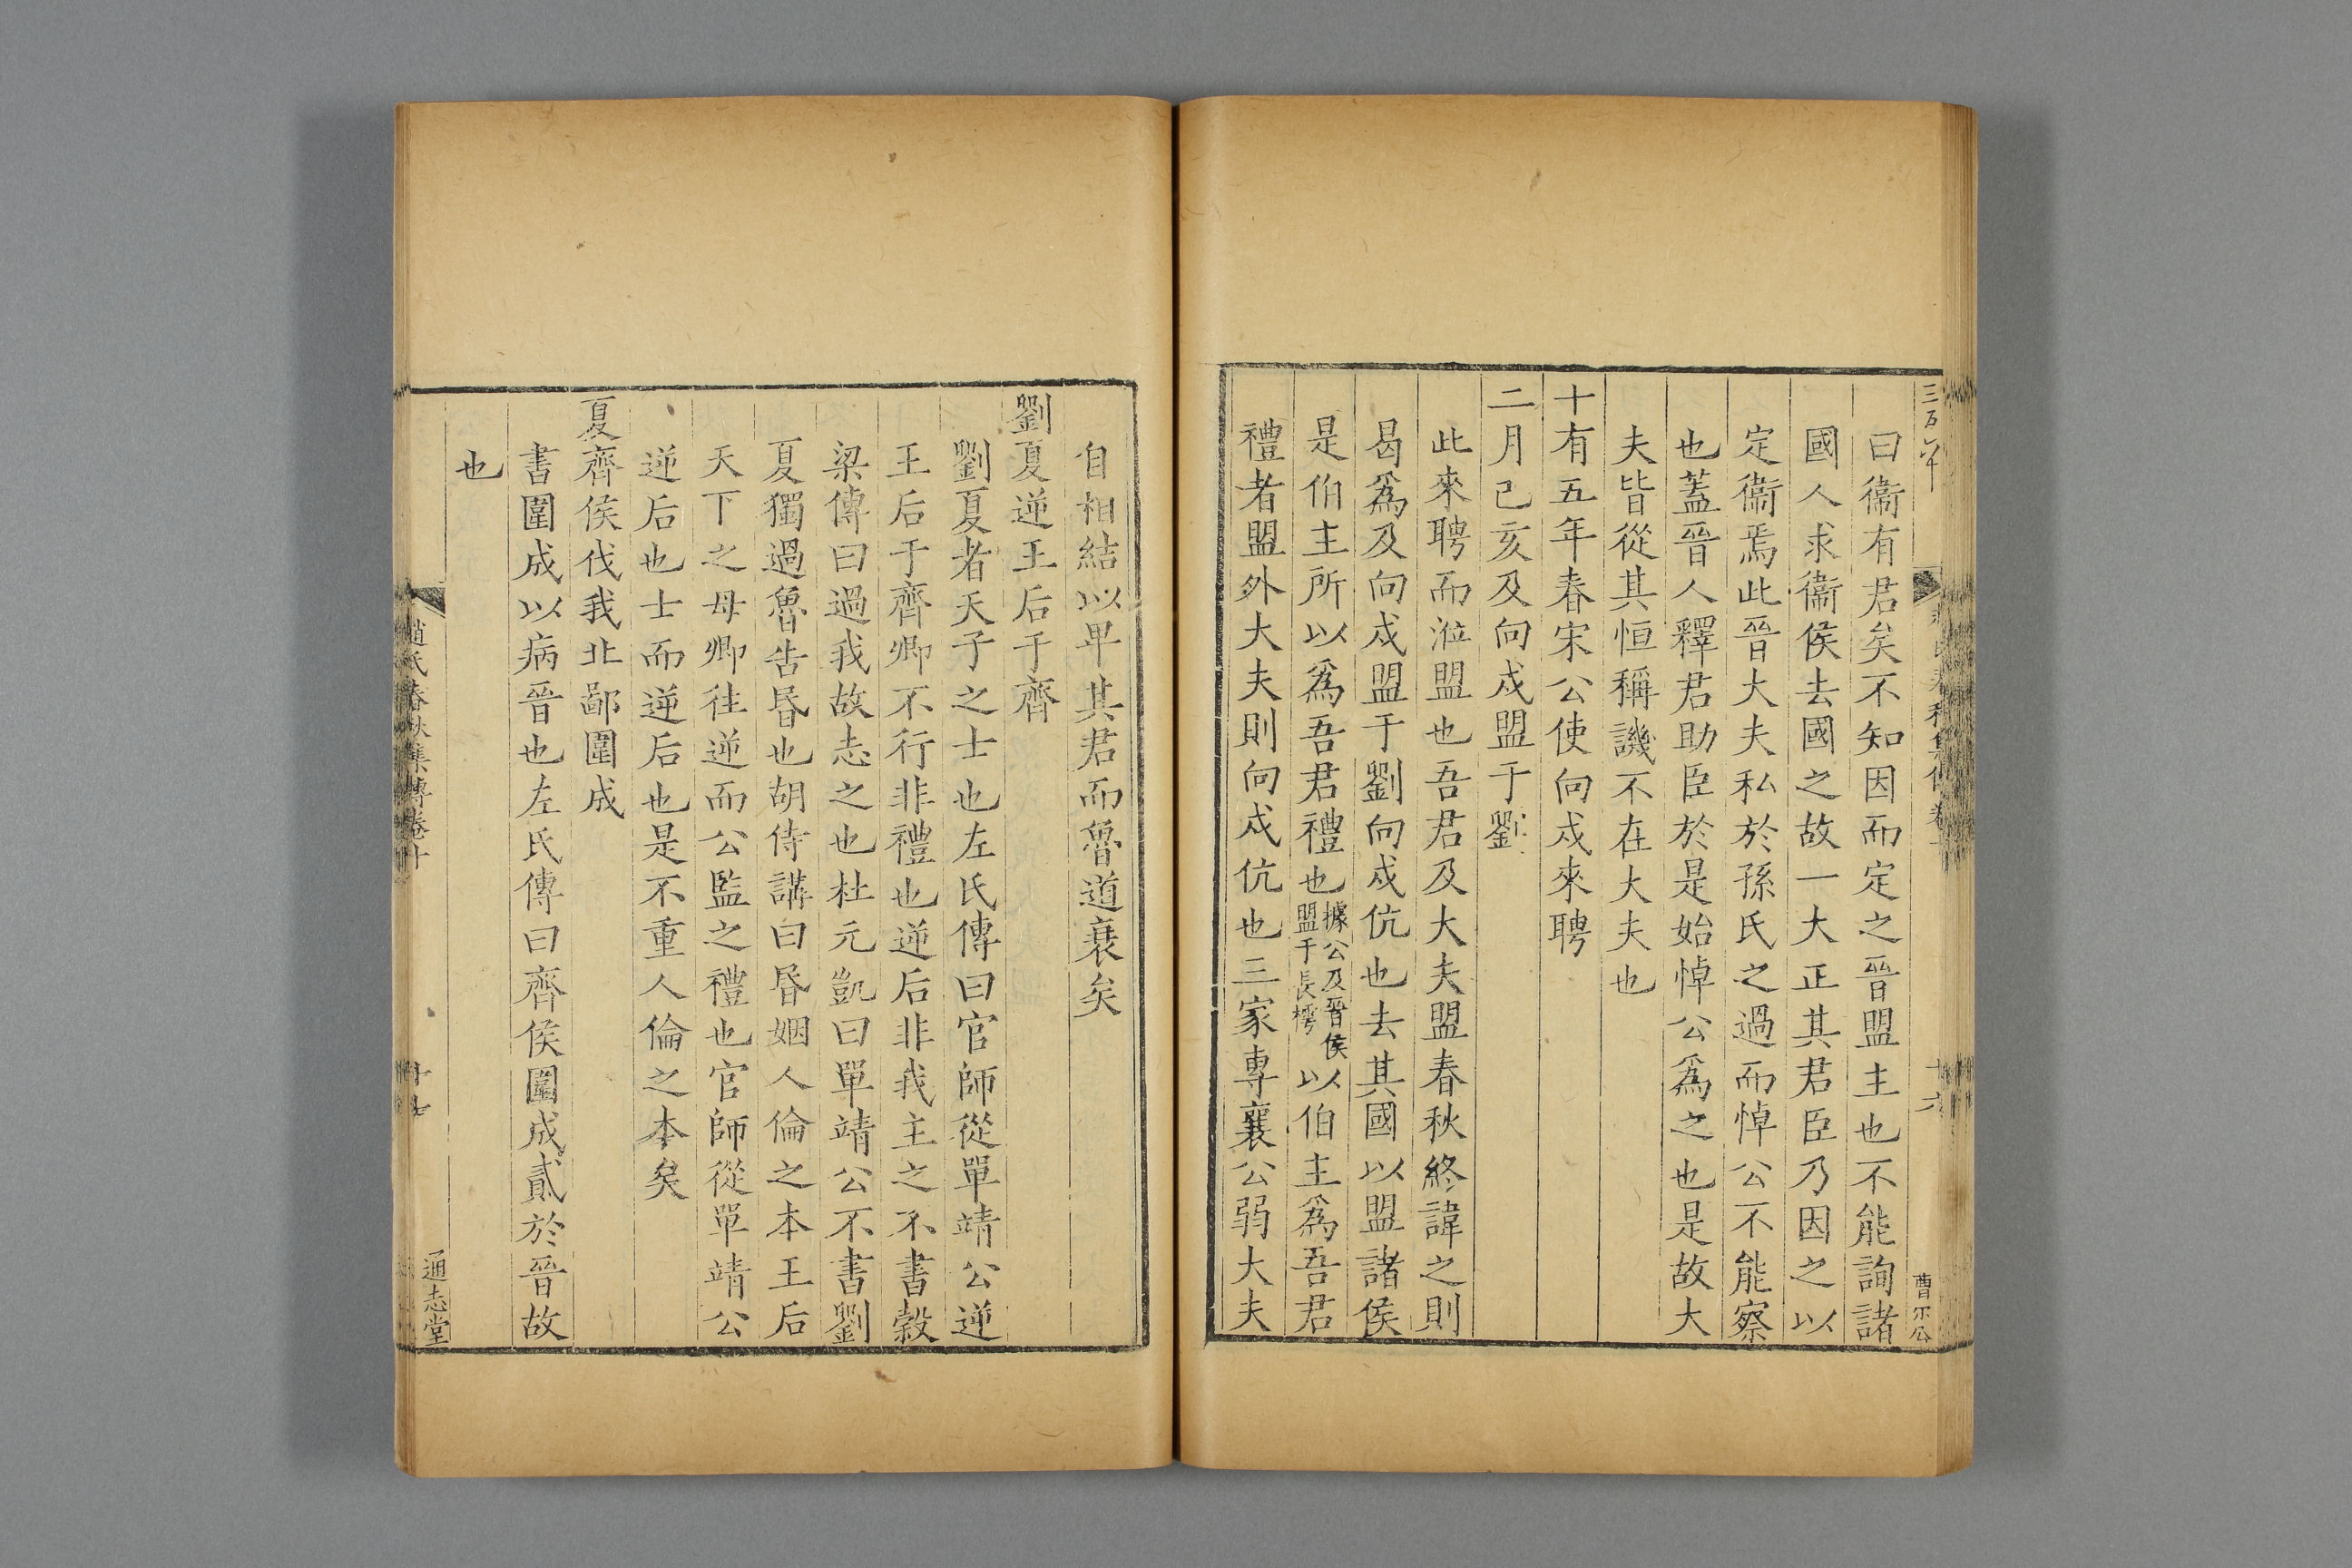 曰衞有君矣不知因而定之晉盟主也不能詢諸
國人求衞侯去國之故一大正其君臣乃因之以
定衞焉此晉大夫私於孫氏之過而悼公不能察
也蓋晉人釋君助臣於是始悼公爲之也是故大
夫皆從其恒稱譏不在大夫也
十有五年春宋公使向戍來聘
二月己亥及向戍盟于劉
此來聘而涖盟也吾君及大夫盟春秋終諱之則
曷爲及向戍盟于劉向戍伉也去其國以盟諸侯
是伯主所以爲吾君禮也據公及晉侯盟于長樗以伯主爲吾君
禮者盟外大夫則向戍伉也三家專襄公弱大夫
自相結以卑其君而魯道衰矣
劉夏逆王后于齊
劉夏者天子之士也左氏傳曰官師從單靖公逆
王后于齊卿不行非禮也逆后非我主之不書穀
梁傳曰過我故志之也杜元凱曰單靖公不書劉
夏獨過魯告昏也胡侍講曰昏姻人倫之本王后
天下之母卿往逆而公監之禮也官師從單靖公
逆后也士而逆后也是不重人倫之本矣
夏齊侯伐我北鄙圍成
書圍成以病晉也左氏傳曰齊侯圍成貳於晉故
也
趙氏春秋集傳卷十
十七
通志堂